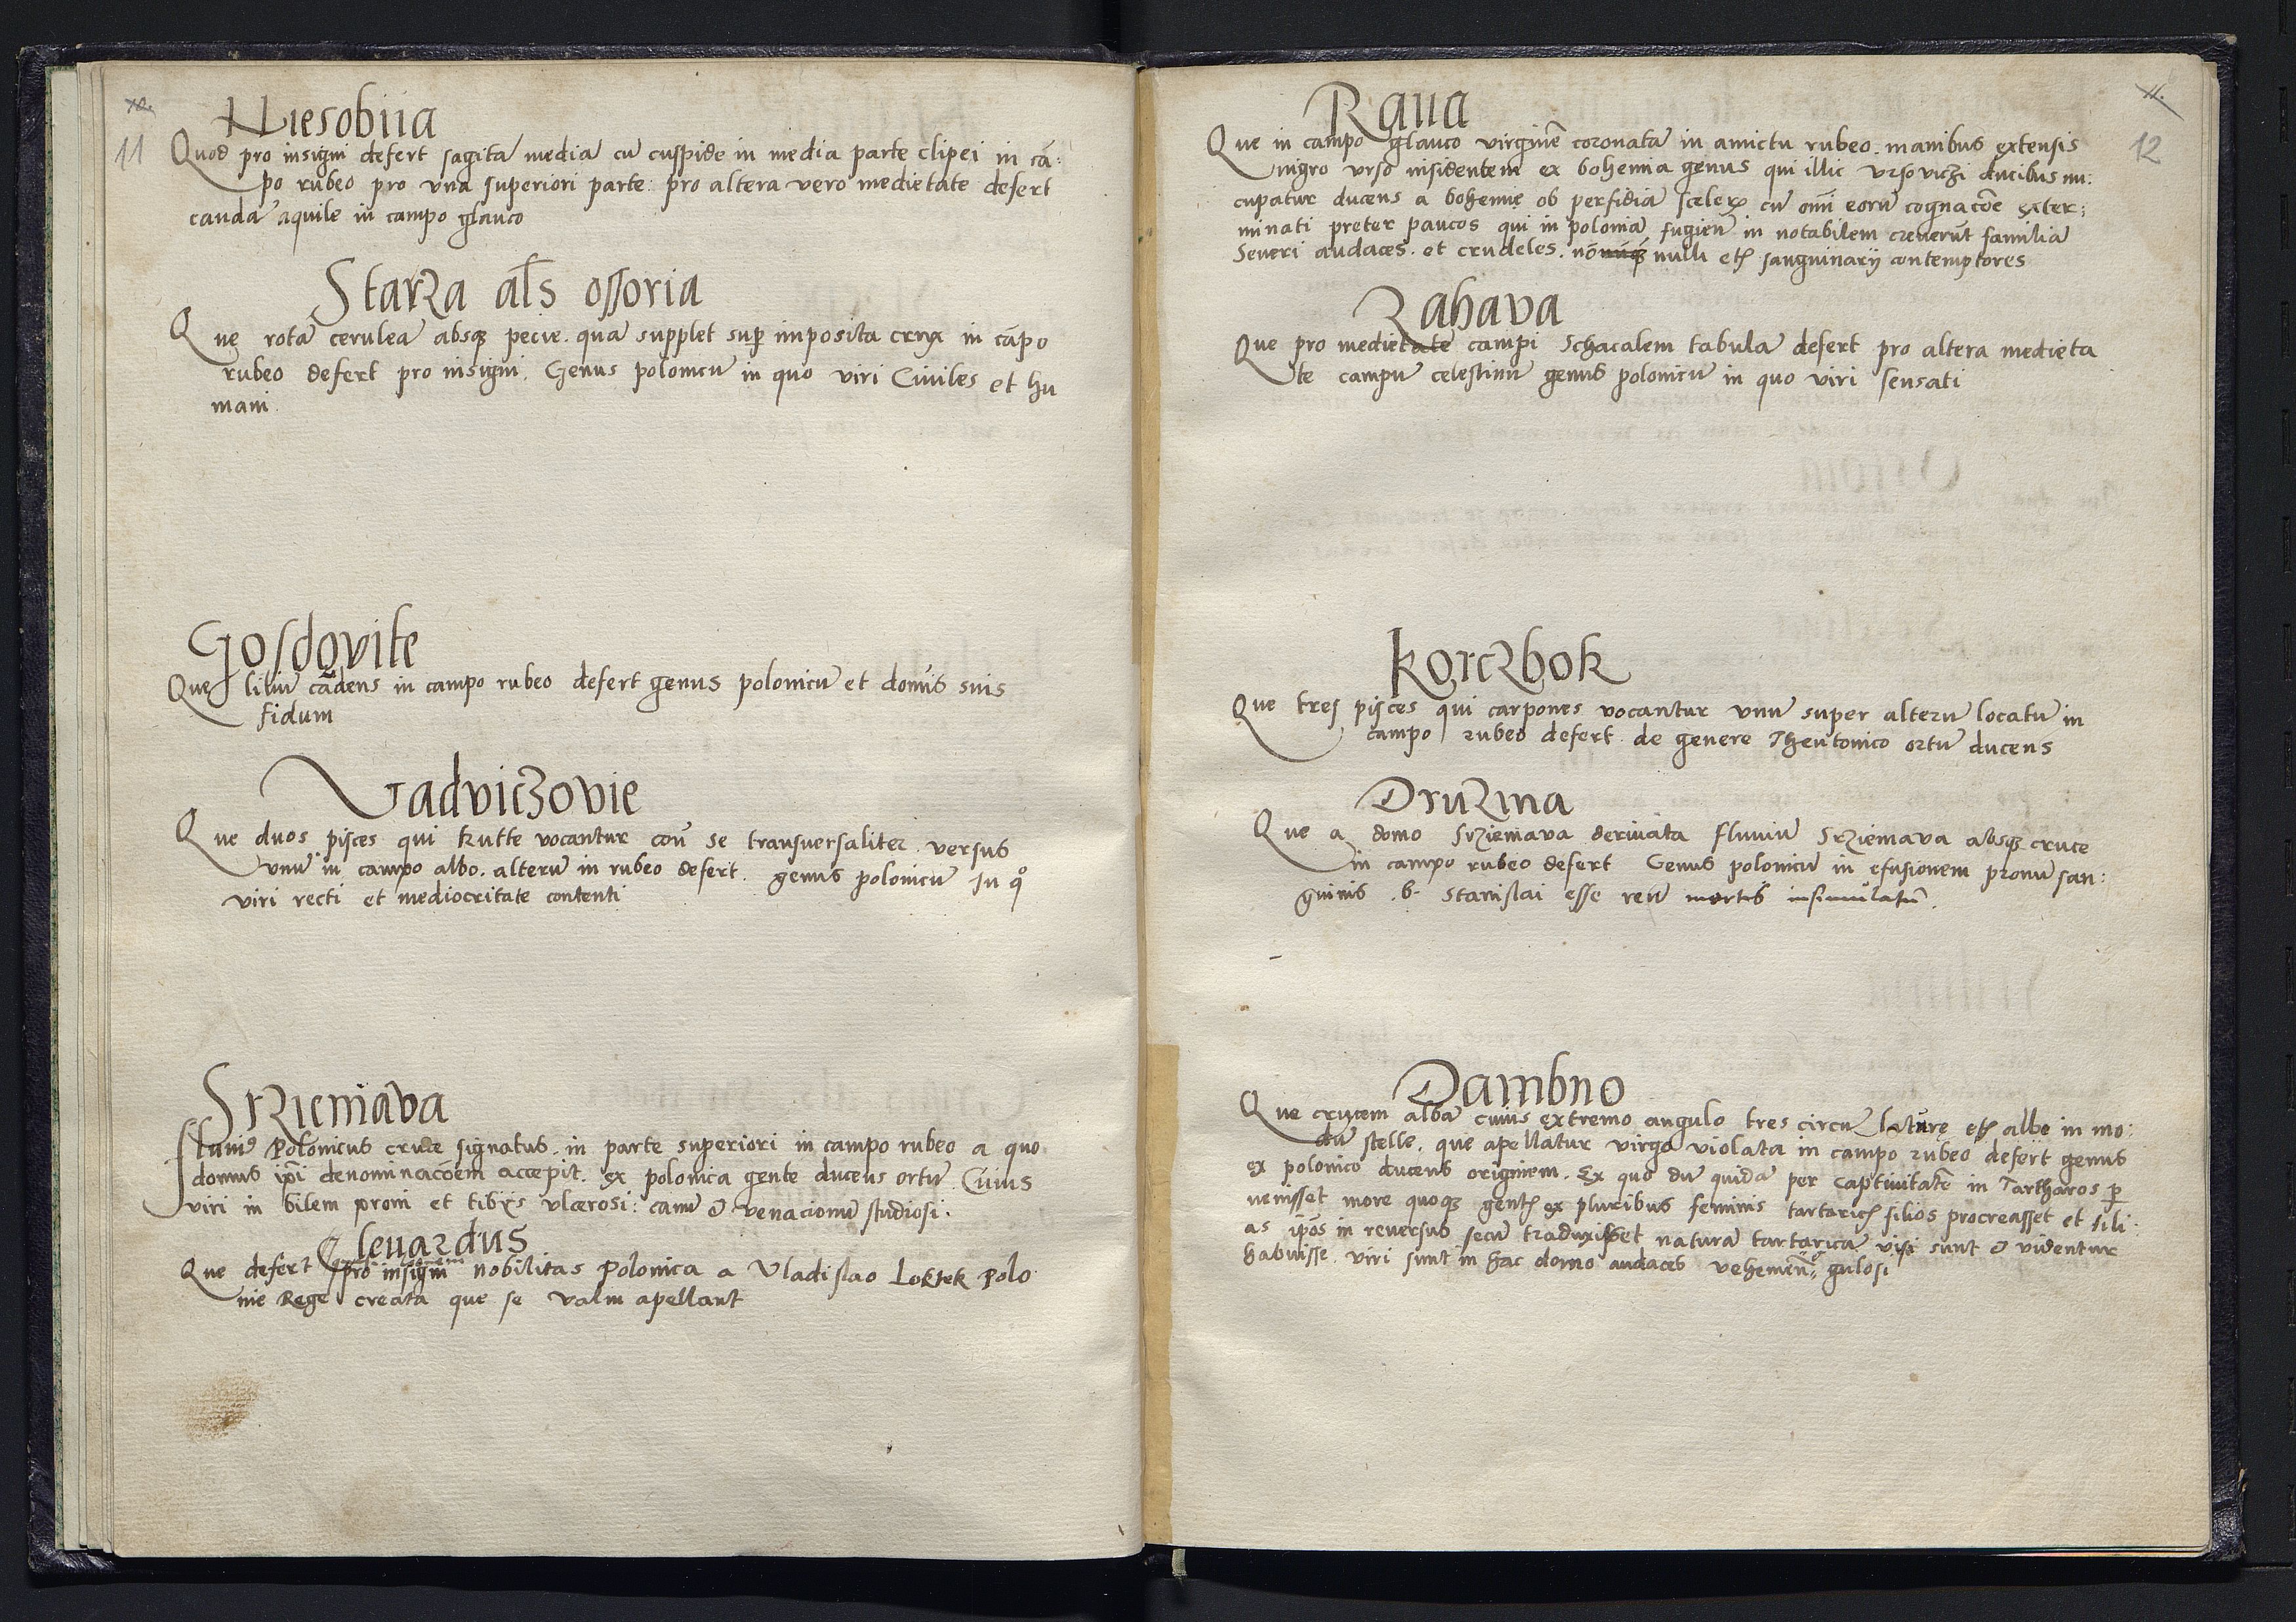 10.
11
Niesobiia
Quod pro insigni defert sagitā mediā cū cuspide in media parte clipei in cā:
po rubeo pro vna superiori parte: pro altera vero medietate defert
caudā aquile in campo glauco
Starza al's ossoria
Que rotā ceruleā absq pecie. quā supplet sup imposita crux in cāpo
rubeo defert pro insigni. Genus polonicū in quo viri Ciuiles et hu
mani.
Gosdovite
Que liliū cādens in campo rubeo defert genus polonicū et domūs suis
fidum
Vadviczovie
Que duos pisces qui kutte vocantur con̄ se transuersaliter versus
vnū in campo albo. alterū in rubeo defert. genus polonicū In qo
viri recti et mediocritate contenti
Srzieniava
fluuiꝰ Polonicus cruce signatus. in parte superiori in campo rubeo a quo
domus ip̄i denominacōem accepit. ex polonica gente ducens ortū. Cuius
viri in bilem proni et tibijs vlcerosi: canū & venacionū studiosi.
Clevardus
Que defert pro insigni nobilitas Polonica a Vladislao Loktek Polo
nie Rege creata que se valni apellant
11.
12
Raua
Que in campo glauco virginē coronatā in amictu rubeo. manibus extensis
nigro vrso insidentem ex bohemia genus qui illic vrsoviczi ducibus nu:
cupatur ducens a bohemię ob perfidiā sceleꝝ cū om̄i eorū cognacōe exter:
minati preter paucos qui in poloniā fugien̄ in notabilem creuerūt familiā
Seueri audaces. et crudeles. nōnūq̄ nulli etꝭ sanguinarij contemptores
Zahava
Que pro medietate campi Schacalem tabulā defert pro altera medieta
te campū celestinū genus polonicū in quo viri sensati
Korczbok
Que tres pisces qui carpones vocantur vnū super alterū locatū in
campo rubeo defert de genere Theutonico ortū ducens
Druzina
Que a domo Srzieniava deriuata fluuiū Srzieniava absqꝫ cruce
in campo rubeo defert Genus polonicū in efusionem pronū san:
guinis .b. Stanislai esse reū mortis insimulatū.
Dambno
Que crucem albā cuius extremo angulo tres circū liturę etꝭ albe in mo:
dū stelle. que apellatur virga violata in campo rubeo defert genus
ex polonico ducens originem. Ex quo dū quidā per captiuitatē in Tartharos p
uenisset more quoqꝫ gentꝭ ex pluribus feminis tartaricꝭ filios procreasset et fili.
as ip̄os in reuersus secū traduxisset naturā tartaricā visi sunt & videntur
habuisse. viri sunt in hac domo audaces vehemen̄ gulosi